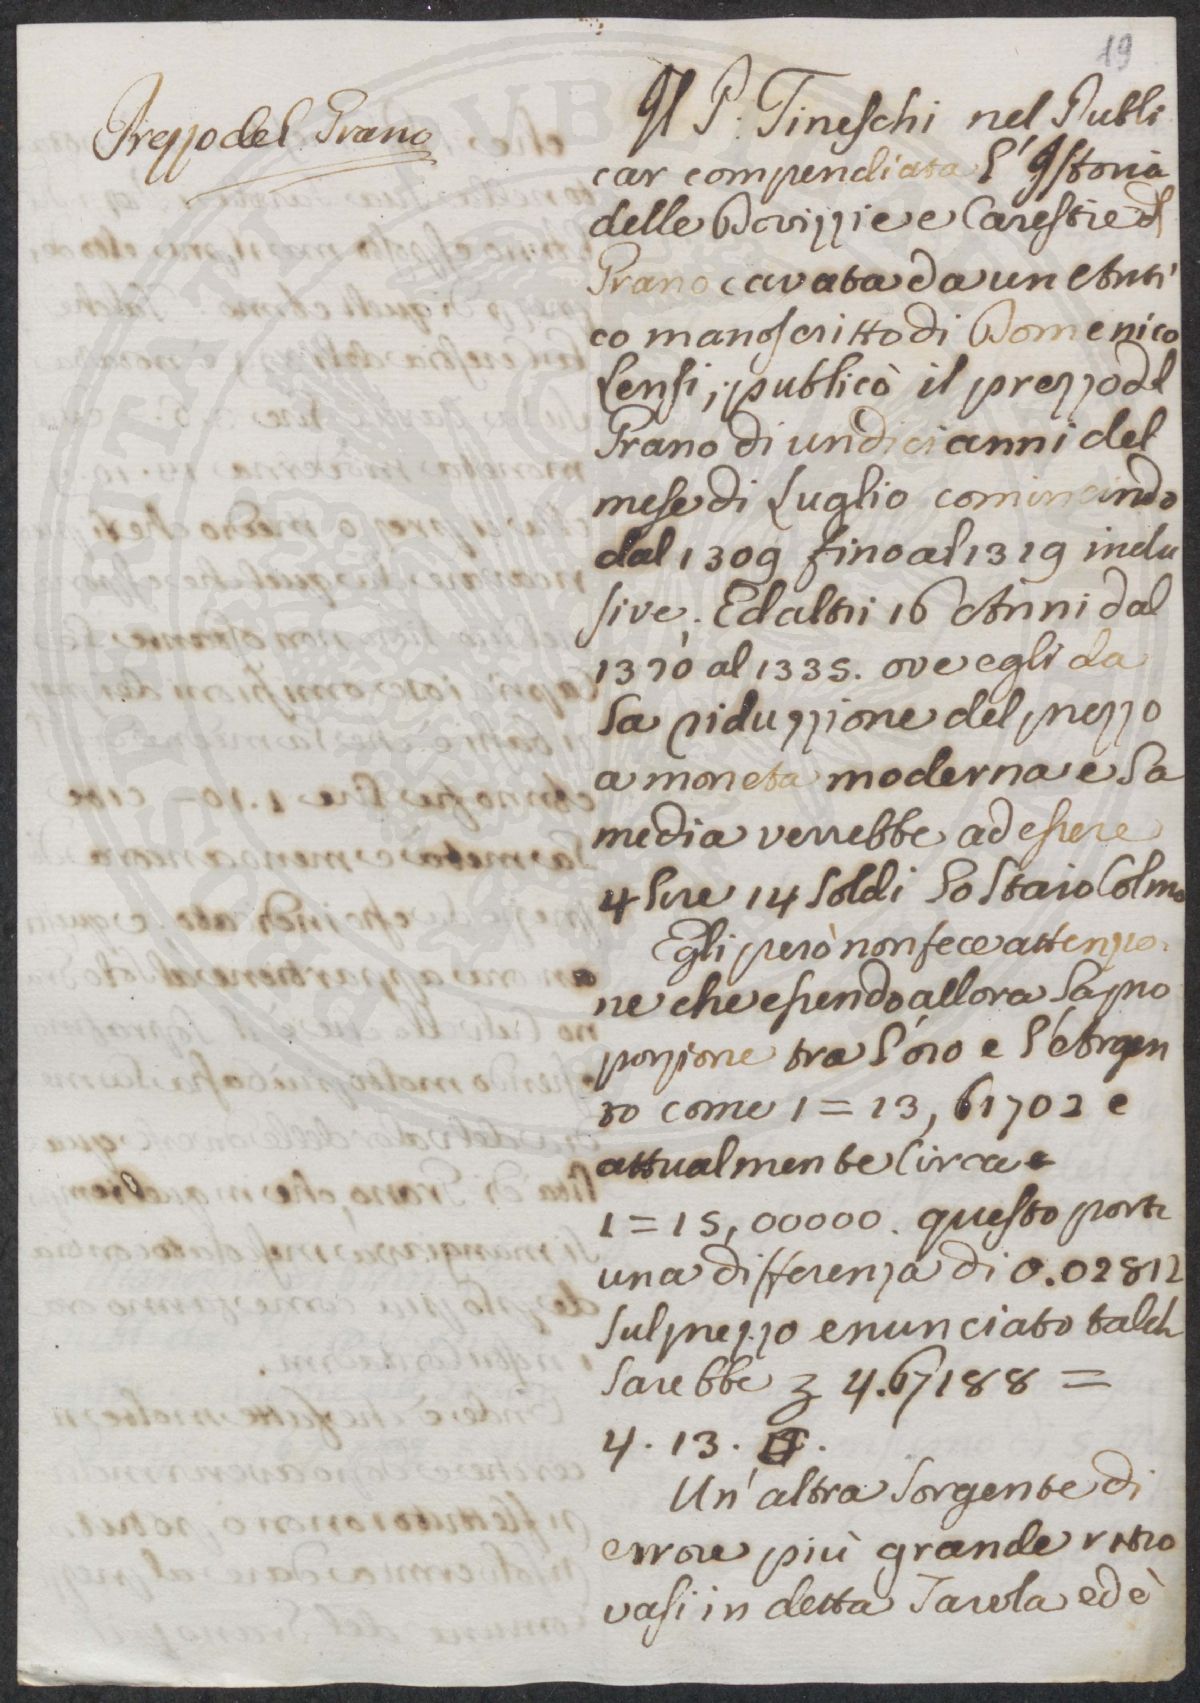 19
Prezzo del Grano
Il P. Fineschi nel Publi
car compendiata l'Istoria
delle Dovizzie e Carestie dl
Grano cavata da un Anti
co manoscritto di Domenico
Lensi, publicò il prezzo dl
Grano di undici anni del
mese di Luglio comincindo
dal 1309 fino al 1319 inclu
sive. Ed altri 16 Anni dal
1320 al 1335. ove egli da
la riduzzione del prezzo
a moneta moderna e la
media verrebbe ad essere
4 lire 14 soldi lo Staio Colmo
Egli però non fece attenzio
ne che essendo allora la pro
porzione tra l'oro e l'Argen
to come 1 = 13,61702 e
attualmente Circa
1 = 15,00000. questo porta
una differenza di 0.02812
sul prezzo enunciato talch
sarebbe 4.67188 =
4.13.
Un'altra sorgente di
errore più grande ritro
vasi in detta Tavola ed è